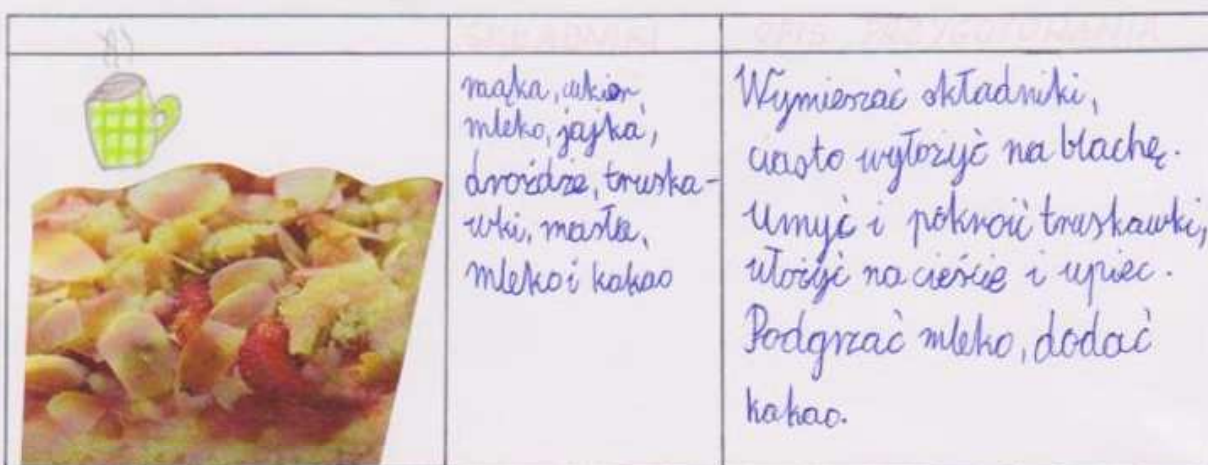 SKŁADNIKI
OPIS PRZYGOTOWANIA
mąka, cukier,
mleko, jajka,
drożdże, truska-
wki, masło,
mleko i kakao
Wymieszać składniki,
ciasto wyłożyć na blachę.
Umyć i pokroić truskawki,
ułożyć na cieście i upiec.
Podgrzać mleko, dodać
kakao.